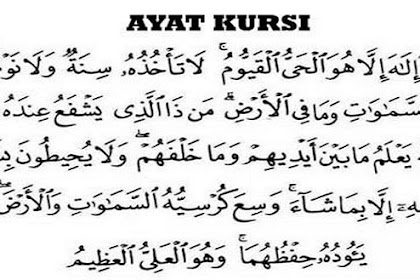 AYAT KURSI
إِلَٰهَ إِلَّا هُوَ ٱلْحَىُّ ٱلْقَيُّومُ ۚ لَا تَأْخُذُهُۥ سِنَةٌ وَلَا
وَمَا فِى ٱلْأَرْضِ ۗ مَن ذَا ٱلَّذِى يَشْفَعُ عِندَهُ
يَعْلَمُ مَا بَيْنَ أَيْدِيهِمْ وَمَا خَلْفَهُمْ ۖ وَلَا يُحِيطُونَ
إِلَّا بِمَا شَآءَ ۚ وَسِعَ كُرْسِيُّهُ ٱلسَّمَٰوَٰتِ وَٱلْأَرْضَ ۖ
يَئُودُهُۥ حِفْظُهُمَا ۚ وَهُوَ ٱلْعَلِىُّ ٱلْعَظِيمُ